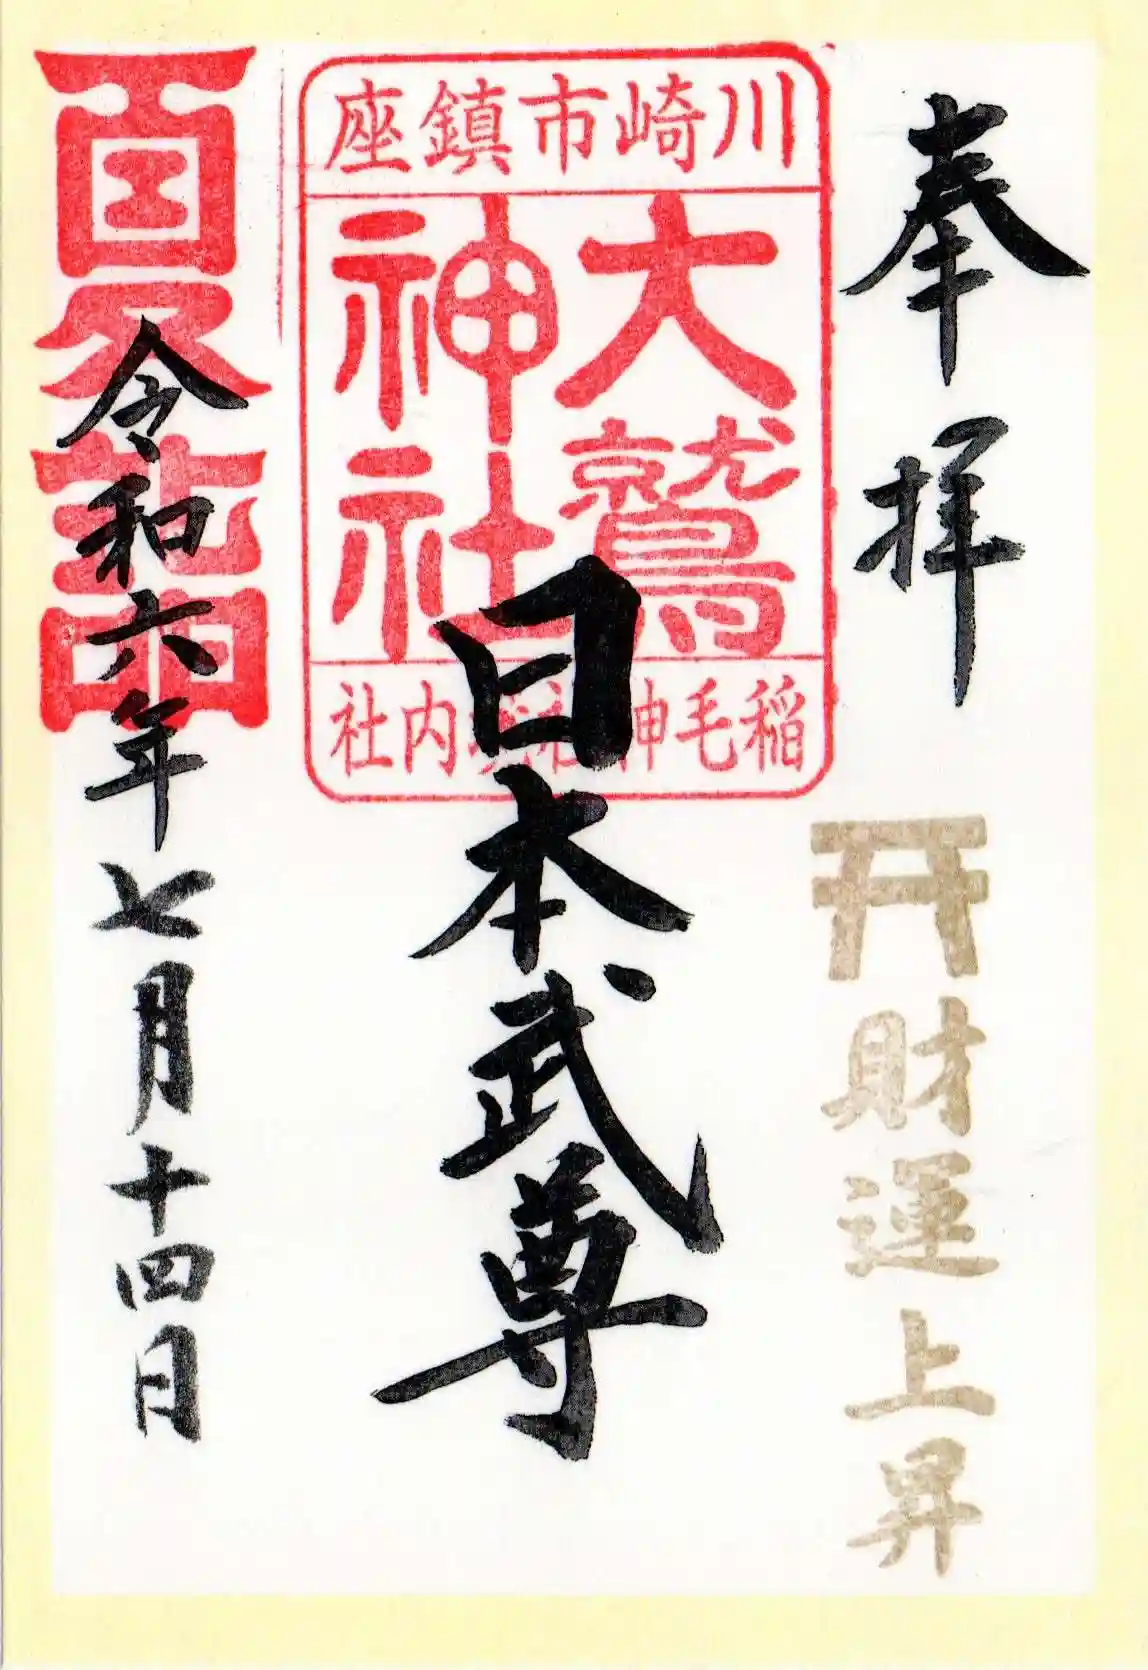 奉拝
財運上昇
川崎市鎮座
大鷲
神社
稲毛神社境内社
日本武尊
令和六年七月十四日